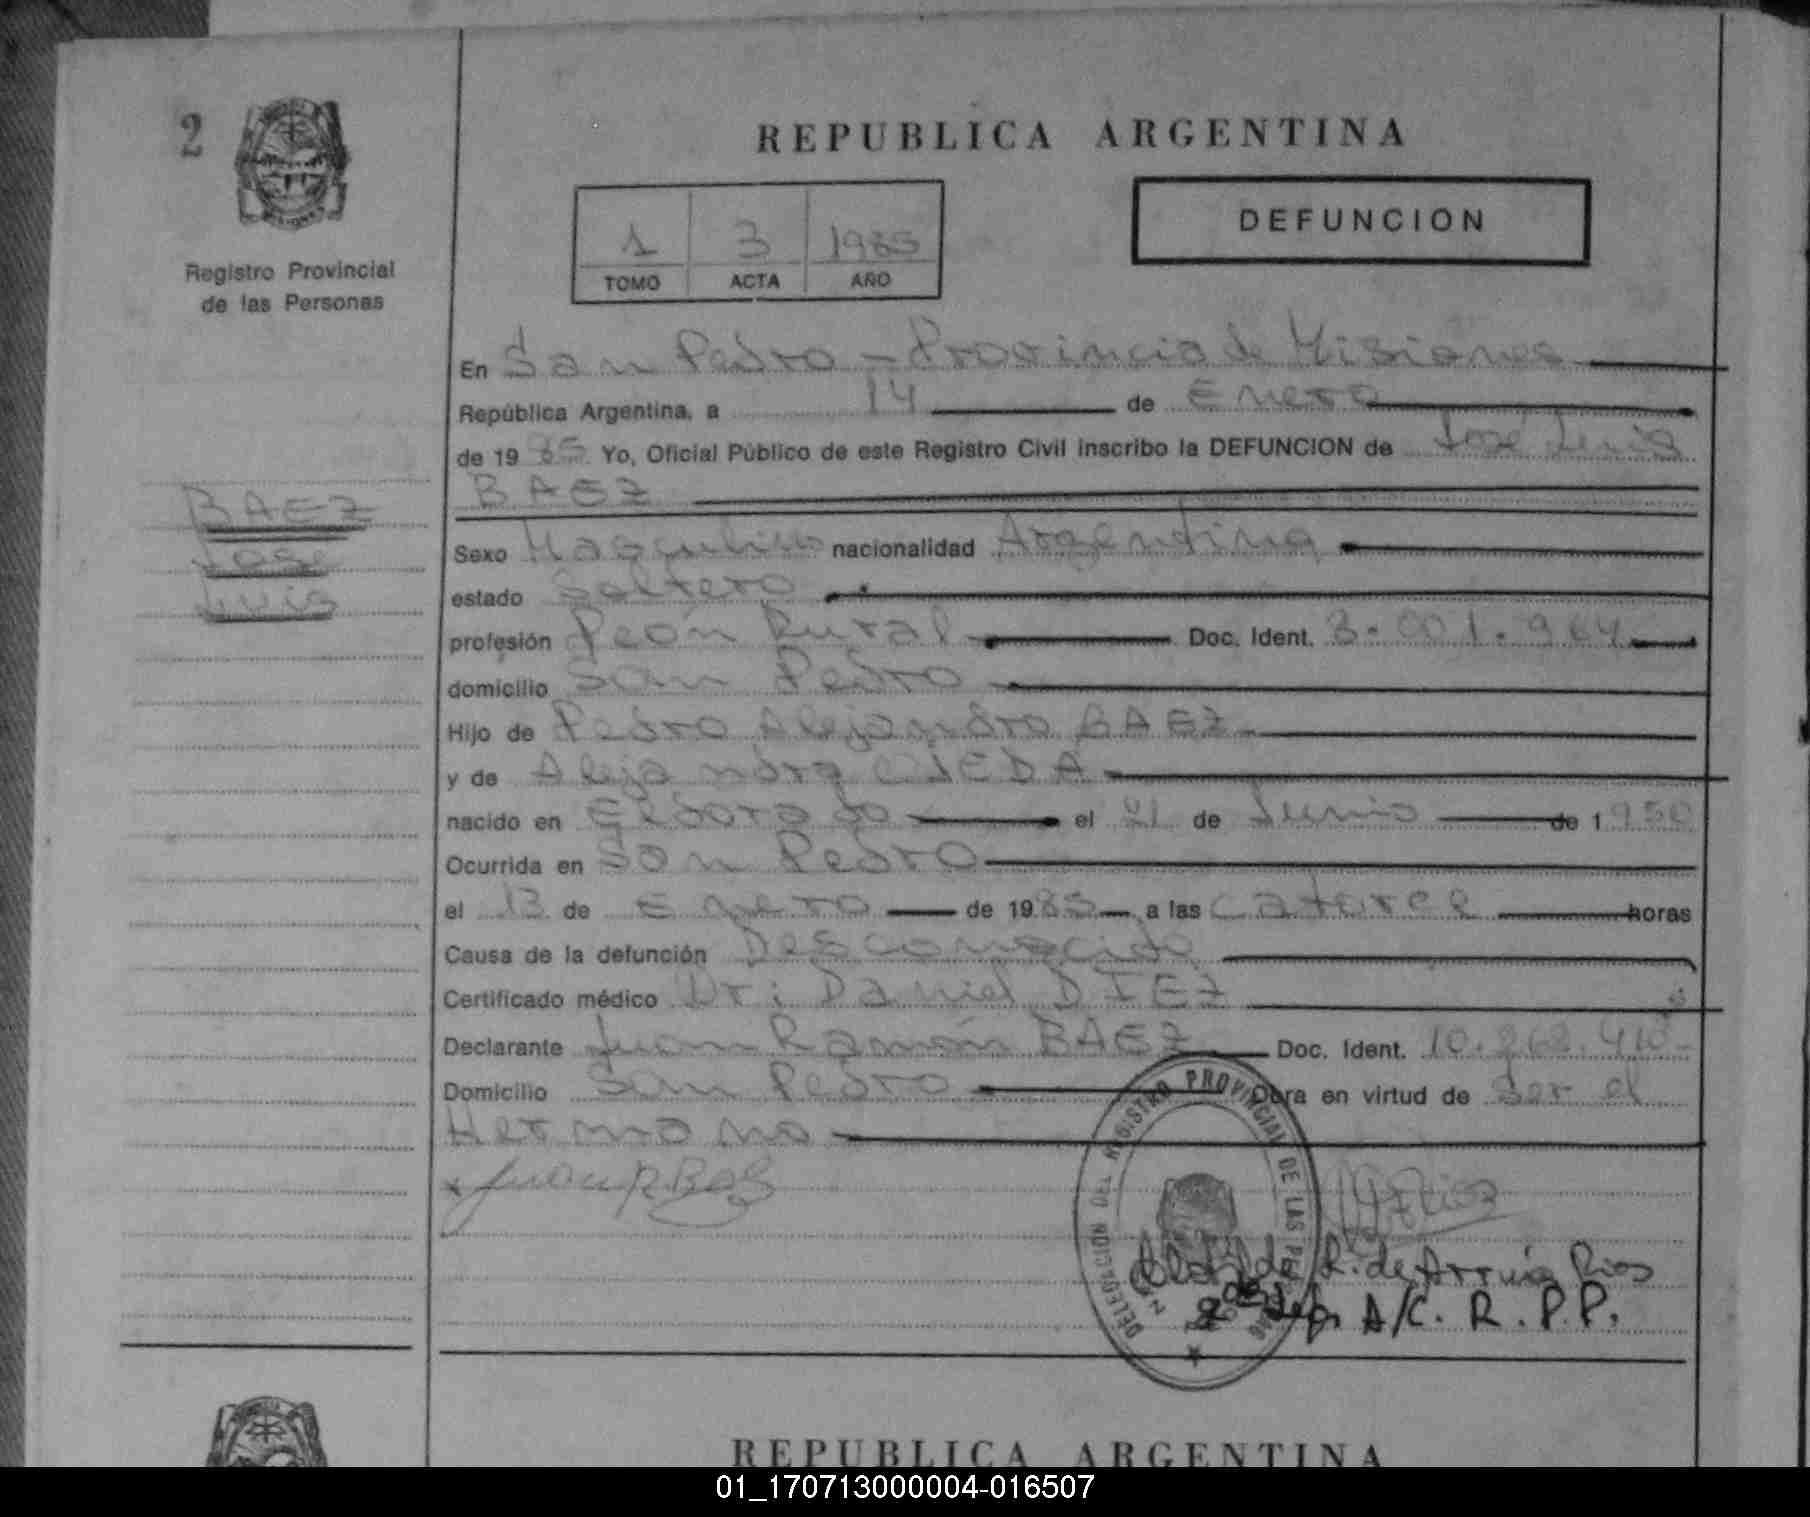 2
REPUBLICA ARGENTINA
1 3 1985
TOMO ACTA AÑO
DEFUNCION
Registro Provincial
de las Personas
BAEZ
Jose
Luis
En San Pedro - Provincia de Misiones
República Argentina, a 14 de Enero
de 1985 Yo, Oficial Público de este Registro Civil inscribo la DEFUNCION de José Luis
BAEZ
Sexo Masculino nacionalidad Argentina
estado Soltero
profesión Peón Rural Doc. Ident.
domicilio San Pedro
Hijo de Pedro Alejandro BAEZ
y de Alejandra OJEDA
nacido en Eldorado el 21 de Junio de 1950
Ocurrida en San Pedro
el 13 de Enero de 1985 a las catorce horas
Causa de la defunción Desconocido
Certificado médico Dr: Daniel DIEZ
Declarante Juan Ramón BAEZ Doc. Ident.
Domicilio San Pedro Obra en virtud de ser el
Hermano
DELEGACION DEL REGISTRO PROVINCIAL DE LAS PERSONAS
R. de Arrúa Rios
A/C. R.P.P.
REPUBLICA ARGENTINA
01_170713000004-016507